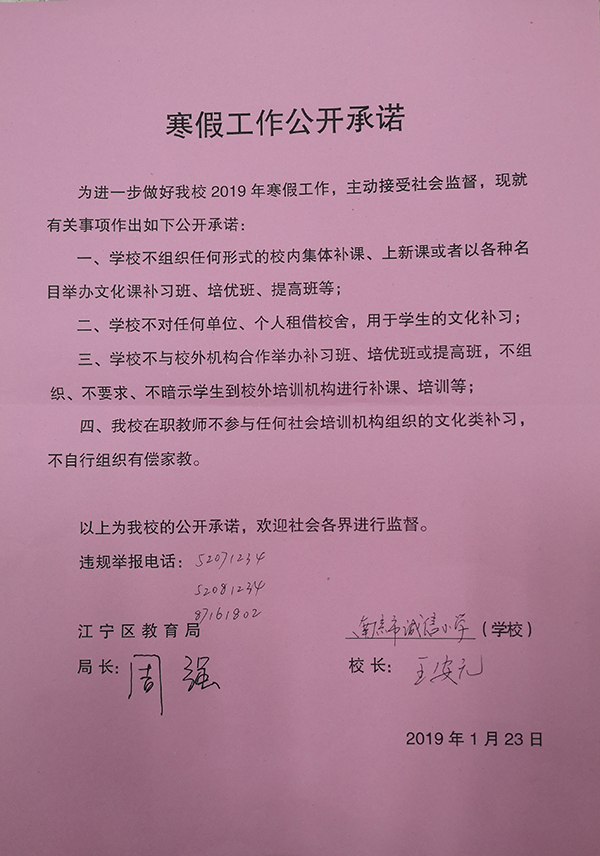 寒假工作公开承诺
为进一步做好我校 2019 年寒假工作，主动接受社会监督，现就
有关事项作出如下公开承诺：
一、学校不组织任何形式的校内集体补课、上新课或者以各种名
目举办文化课补习班、培优班、提高班等；
二、学校不对任何单位、个人租借校舍，用于学生的文化补习；
三、学校不与校外机构合作举办补习班、培优班或提高班，不组
织、不要求、不暗示学生到校外培训机构进行补课、培训等；
四、我校在职教师不参与任何社会培训机构组织的文化类补习，
不自行组织有偿家教。
以上为我校的公开承诺，欢迎社会各界进行监督。
违规举报电话：52071234
52081234
87161802
江宁区教育局 南京市诚信小学（学校）
局长：周强 校长：王安元
2019 年 1 月 23 日